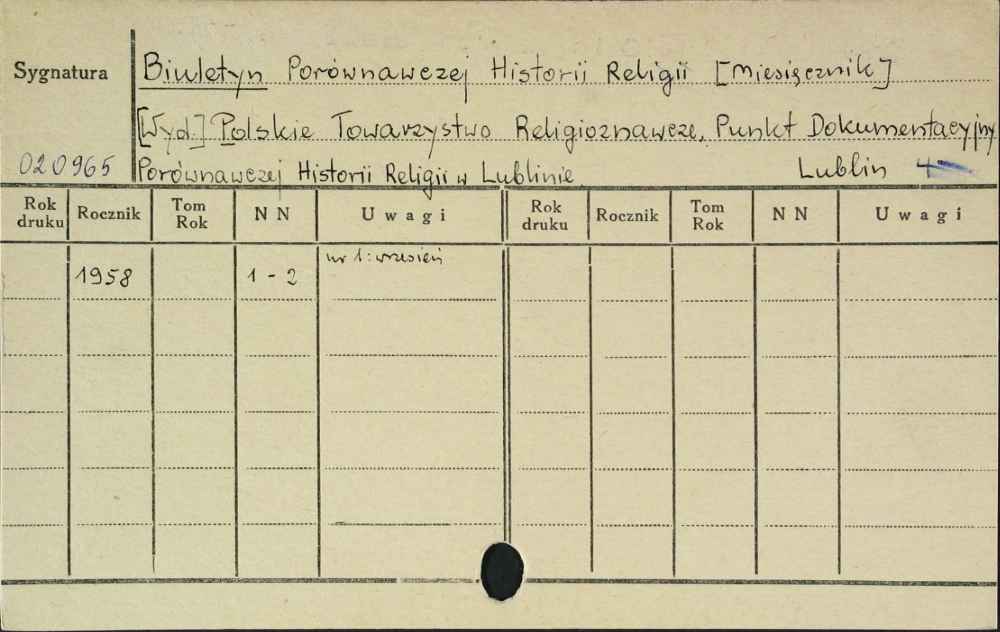 Sygnatura Biuletyn Porównawczej Historii Religii [Miesięcznik]
[Wyd.] Polskie Towarzystwo Religioznawcze, Punkt Dokumentacyjny
020965 Porównawczej Historii Religii w Lublinie Lublin
Rok druku Rocznik Tom Rok NN Uwagi Rok druku Rocznik Tom Rok NN Uwagi
nr 1: wrzesień
1958 1-2